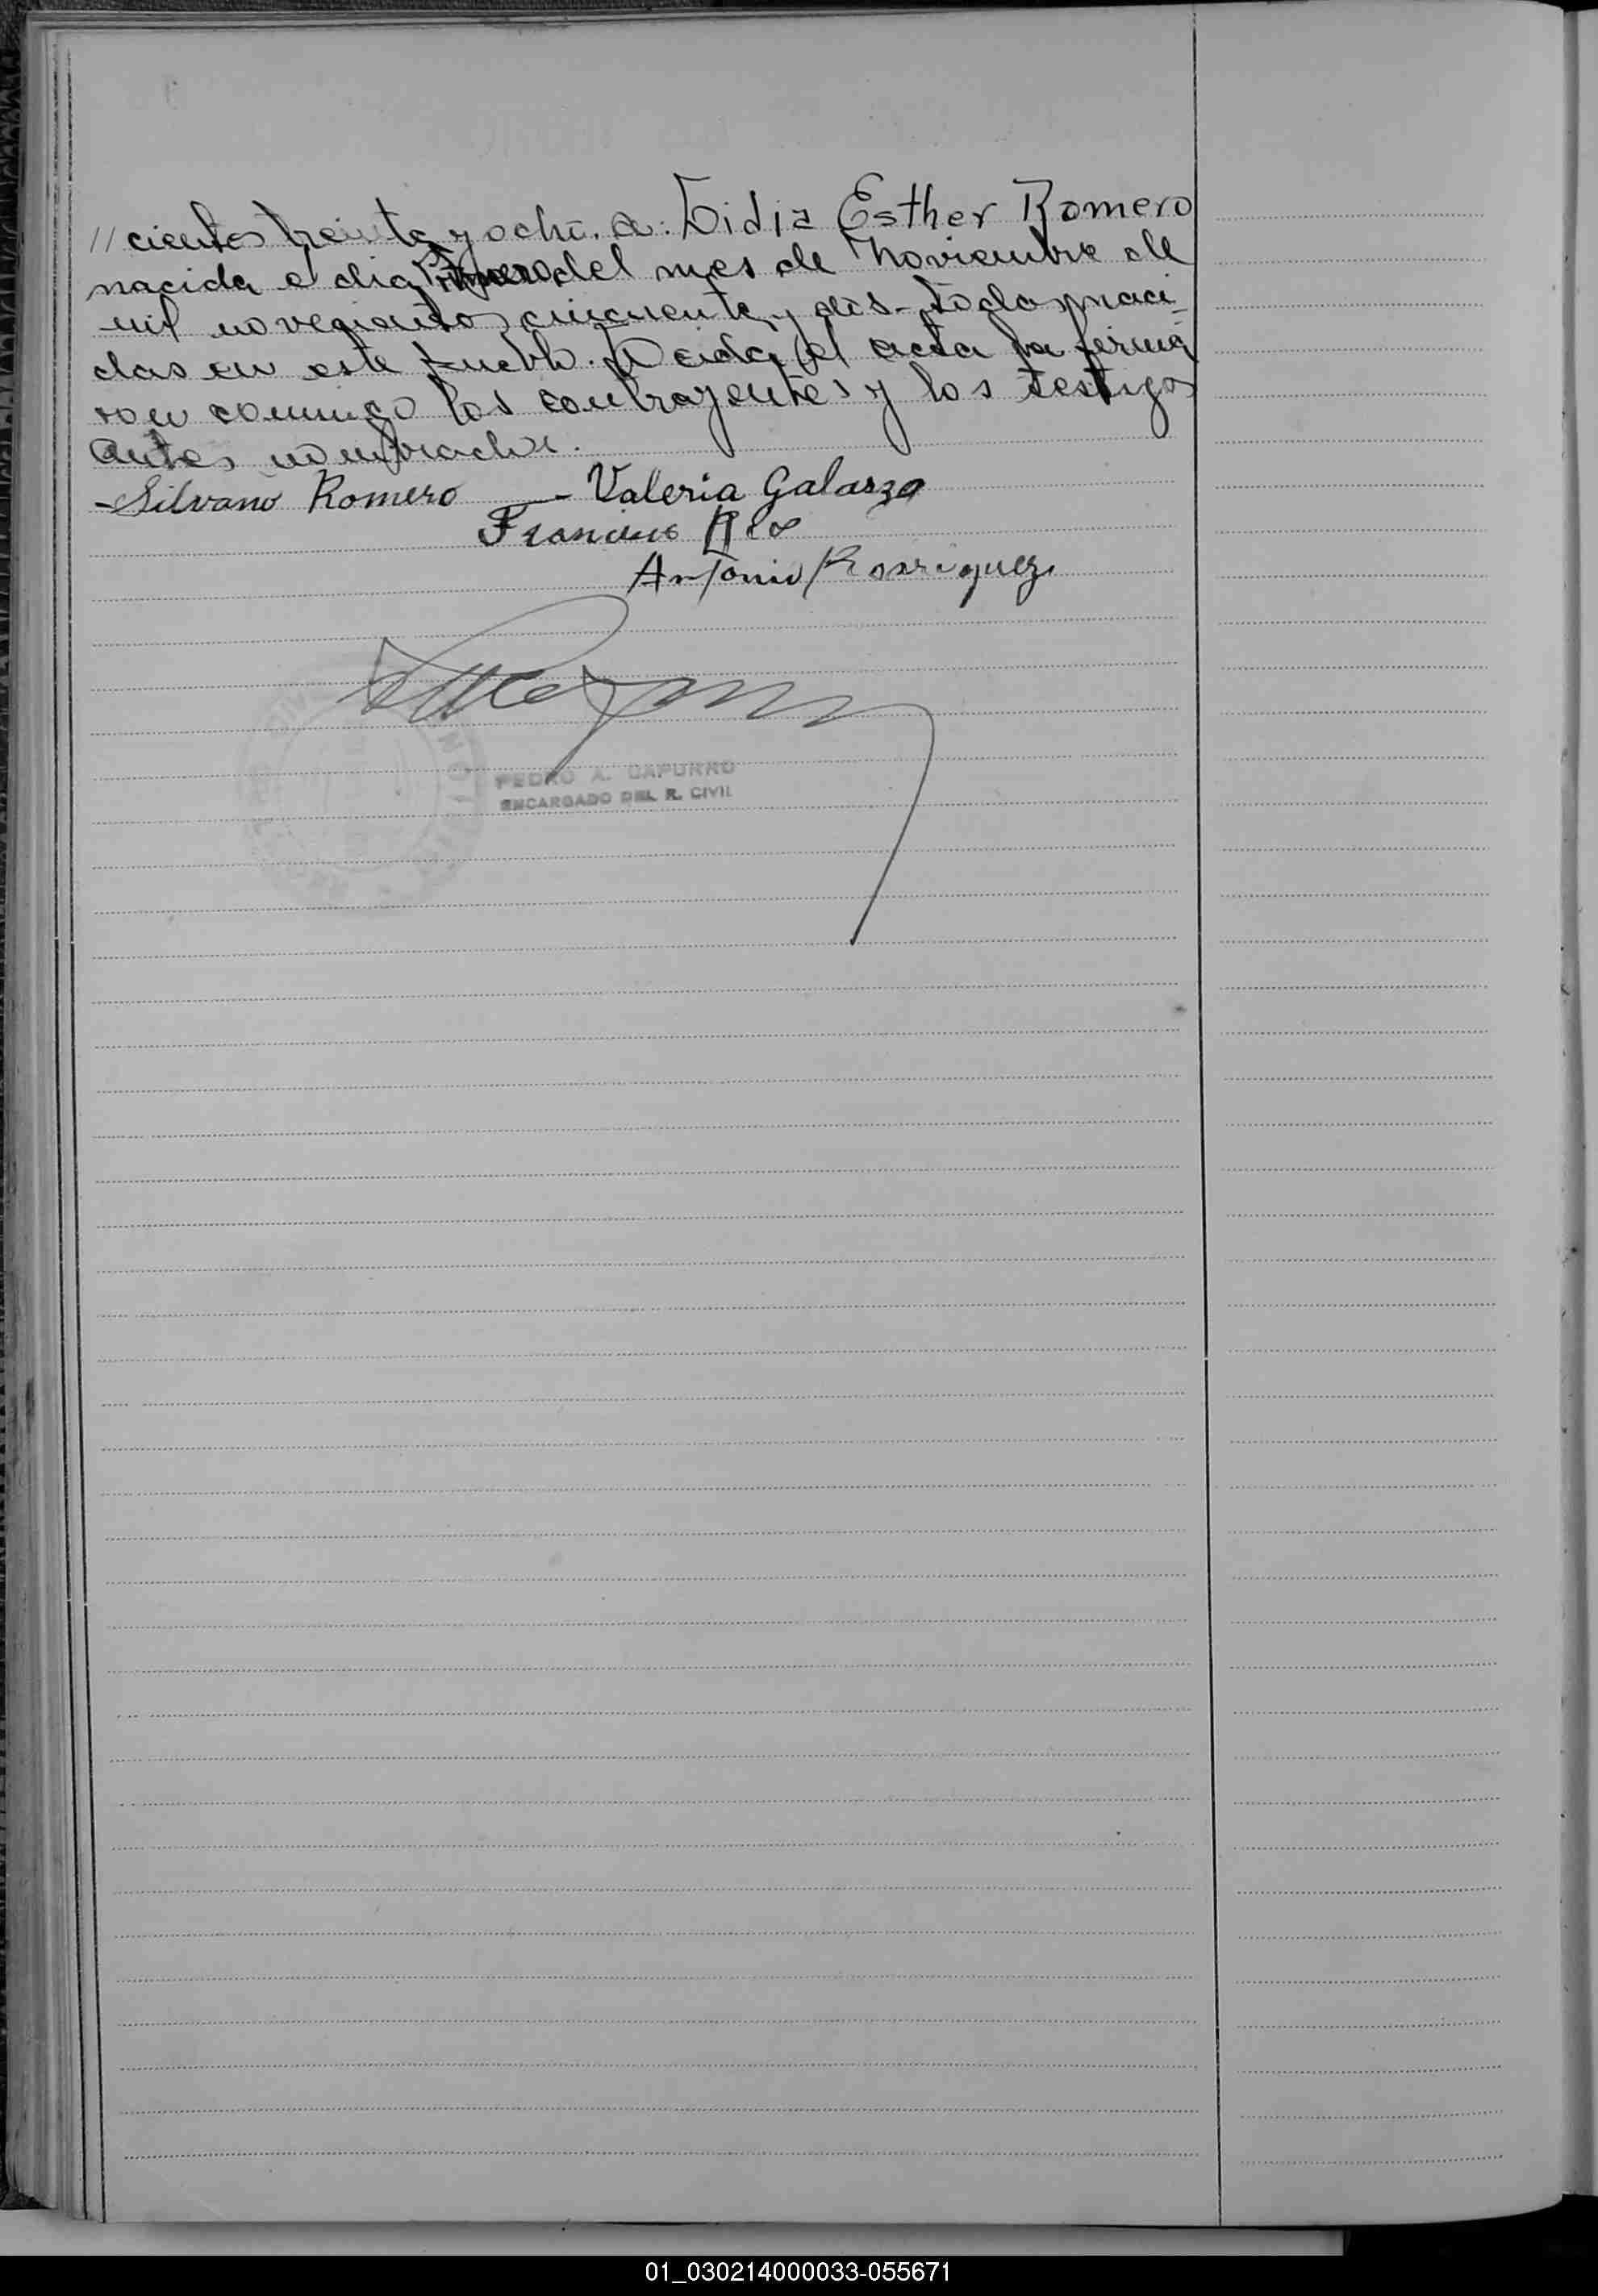 // cientos treinta y ocho. a: Lidia Esther Romero
nacida el dia Primero del mes de Noviembre de
mil novecientos cincuenta y dos - todos naci-
dos en este pueblo. Leida el acta la firma
ron conmigo los contrayentes y los testigos
antes nombrados.
- Silvano Romero - Valeria Galarza
Francisco
Antonio Rodriguez
PEDRO A. CAPURRO
ENCARGADO DEL R. CIVIL
01_030214000033-055671